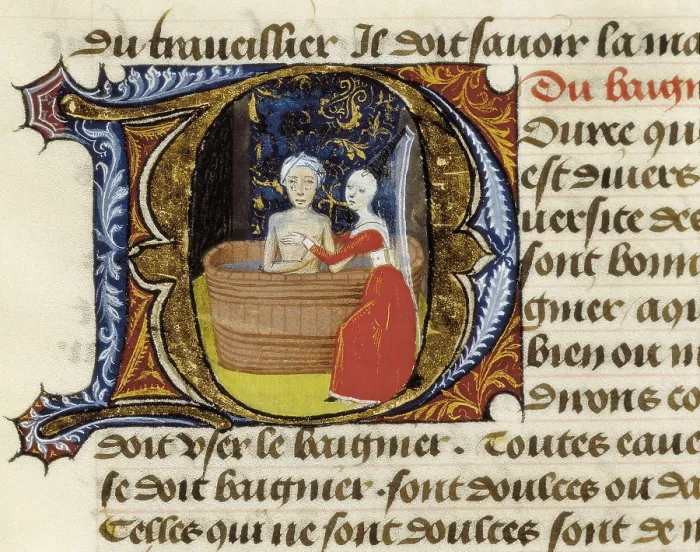 du traueillier Il doit sauoir la ma
Du baign
Ource qu
est diuers
uersite de
sont bonn
gnier aqu
bien ou m
dirons co
doit vser le baignier . Toutes eaue
se doit baignier . sont doulces ou
Celles qui ne sont doulces sont de